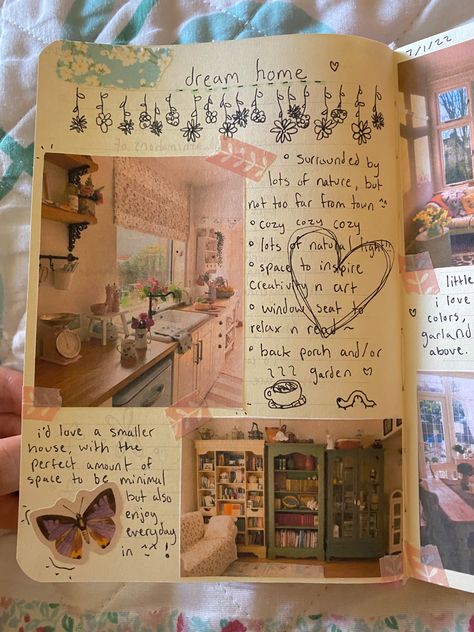 dream home
• surrounded by
lots of nature, but
not too far from town
• cozy cozy cozy
• lots of natural light!!
• space to inspire
creativity n art
• window seat to
relax n read ~
• back porch and/or
garden
i'd love a smaller
house, with the
perfect amount of
space to be minimal
but also
enjoy
everyday
in ^x^ !
7/1/22
little
i love
colors,
garland
above.